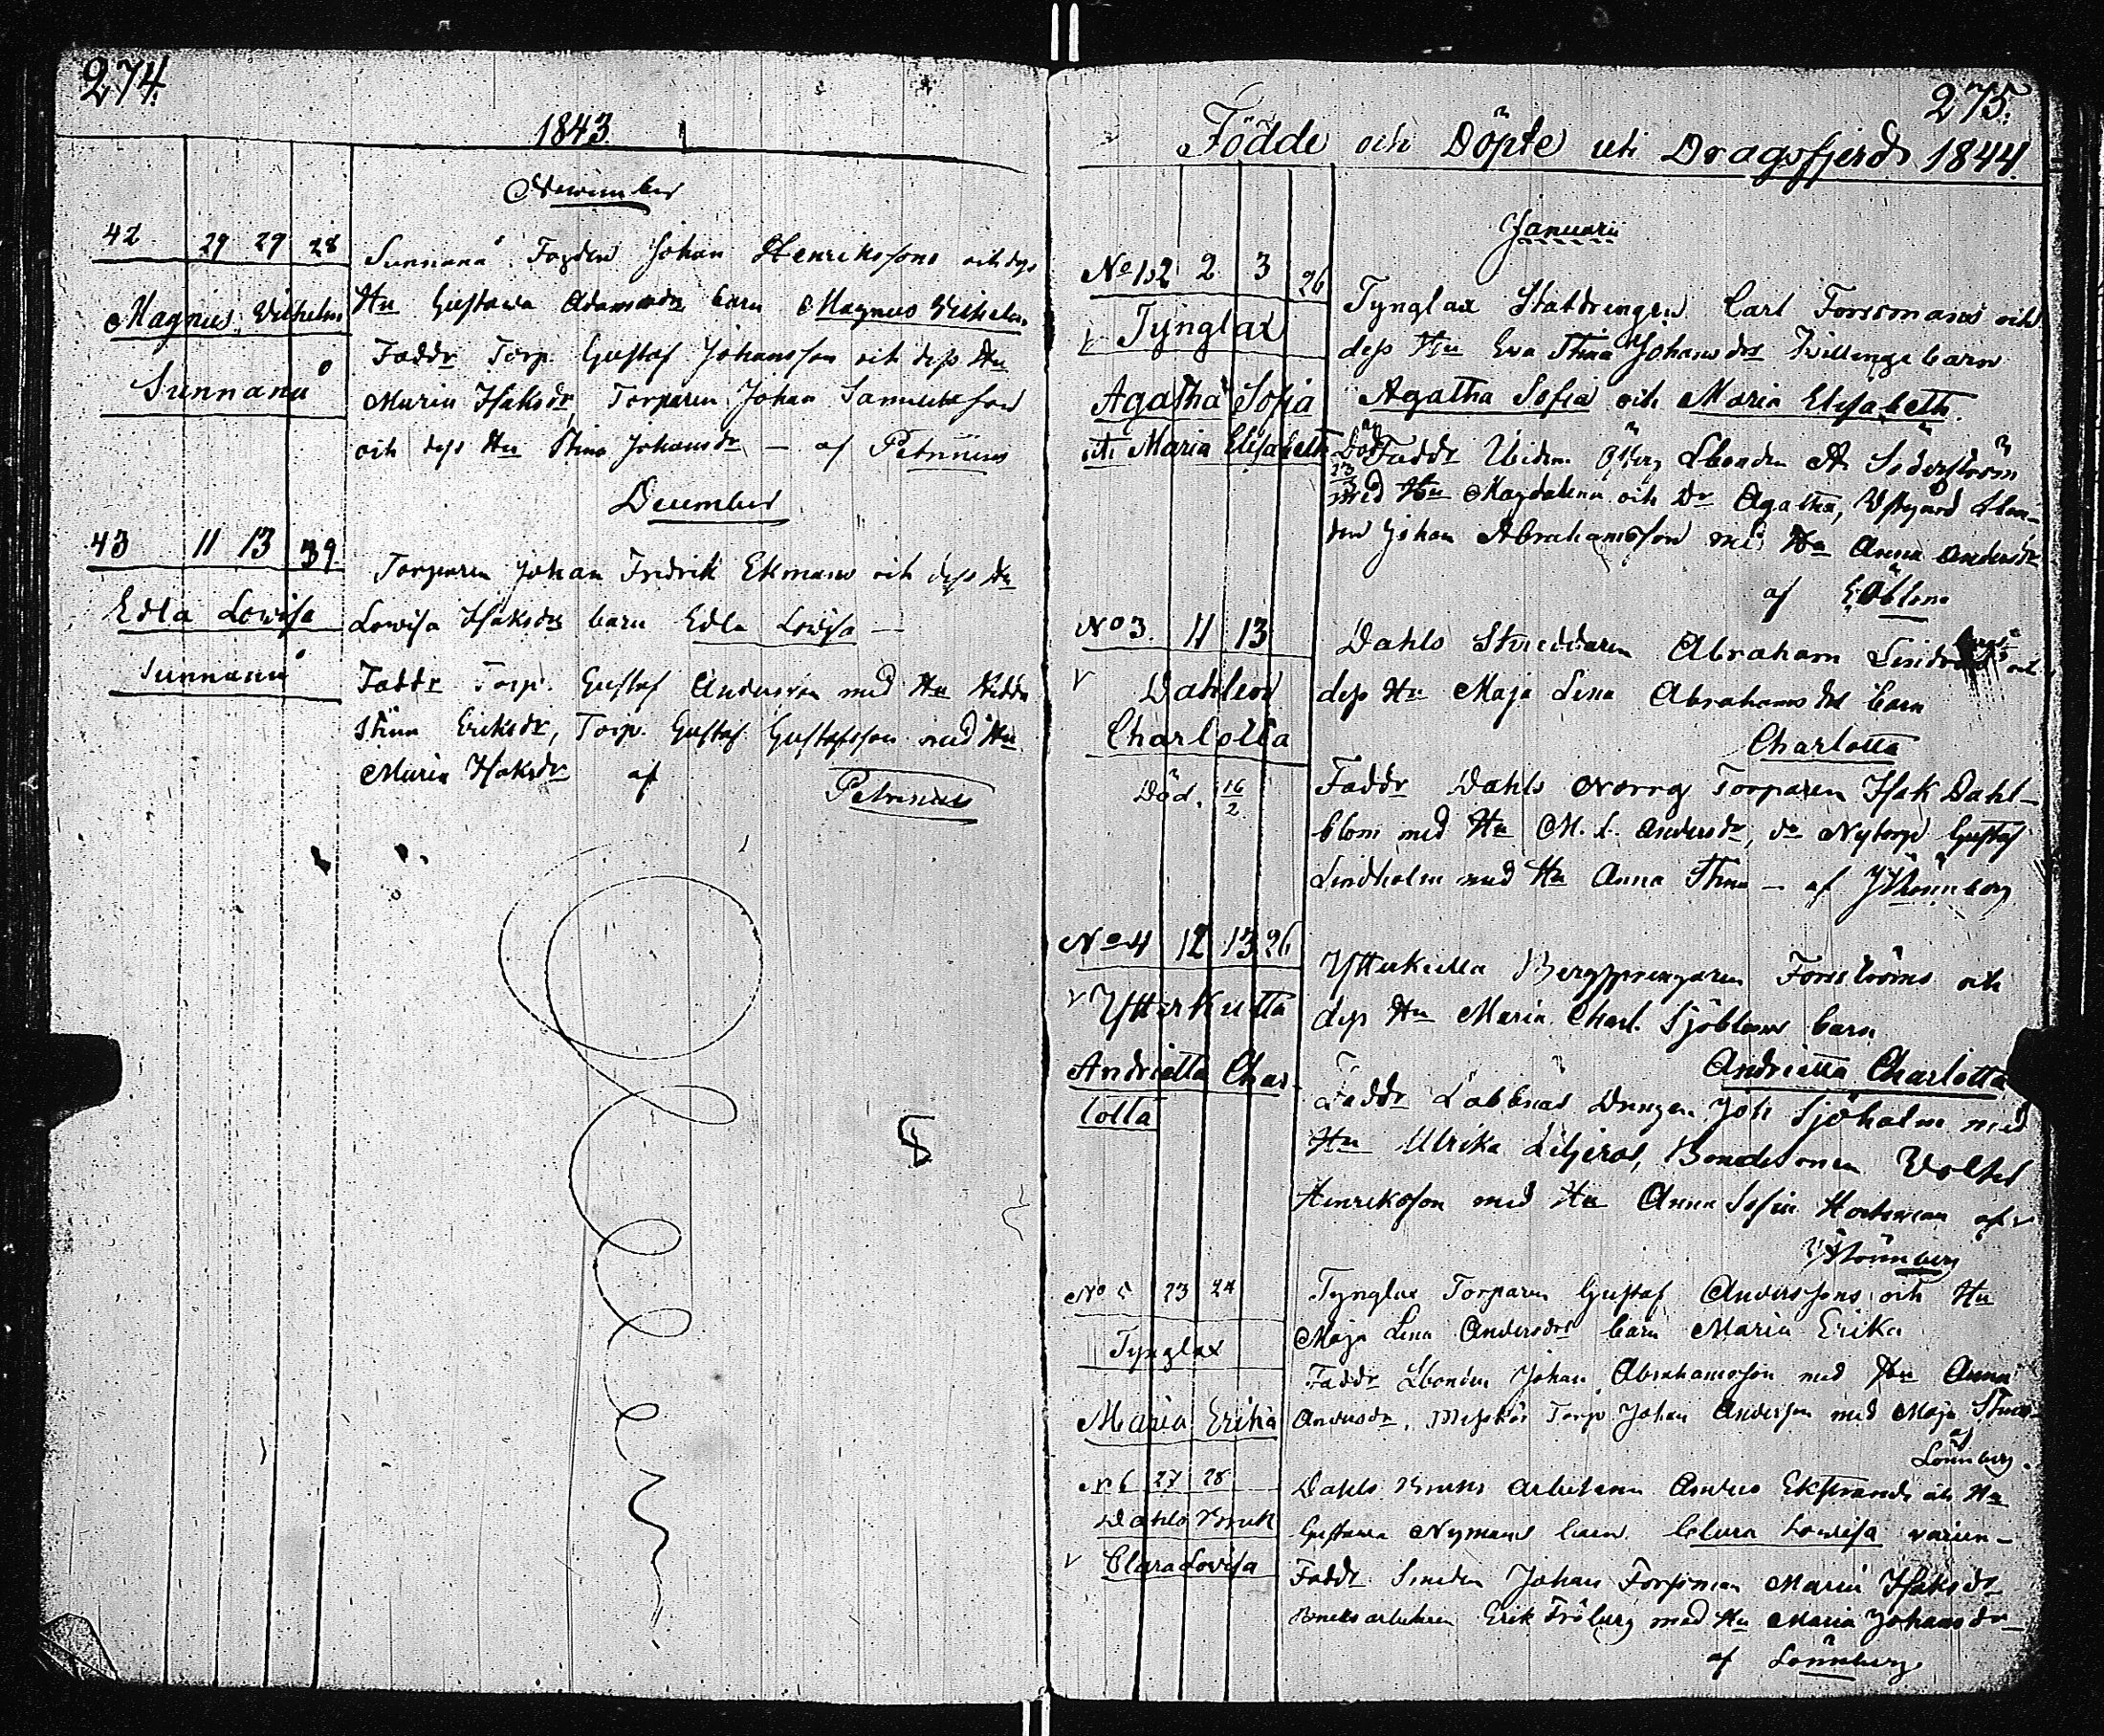 274.
1843.
November
42 29 29 28
Magnus Vilhelm
Sunnanå
Sunnanå Johan Henrikssons och dess
Hu Gustava barn Magnus Vilhelm
Faddr Torp. Gustaf Johansson och dess Hu
Maria Isaksdr, Torparen Johan Samuelsson
och dess Hu Stina Johansdr — af Petrenius
December
43 11 13 39
Edla Lovisa
Sunnanå
Torparen Johan Fredrik Ekmans och dess Hu
Lovisa Isaksdrs barn Edla Lovisa —
Faddr Torp. Gustaf Andersson med Hu Hedda
Stina Eriksdr, Torp. Gustaf Gustafsson med Hu
Maria Isaksdr af
Petrenius
275.
Födde och Döpte uti Dragsfjerd 1844
Januarii
No 1,2 2 3 26
Tynglax
Agatha Sofia
och Maria Elisabeth
Tynglax Stattdrengen Carl Forssmans och
dess Hu Eva Stina Johansdrs Tvillinge barn
Agatha Sofia och Maria Elisabeth.
Faddr Lbonden Söderström
med Hu Magdalena och Dr Agatha, Lbon-
den Johan Abrahamsson med Hu Anna Andersdr
af
No 3. 11 13
Dahlen
Charlotta
Död. 16/2
Dahls Abraham och
dess Hu Maja Lena Abrahamsdrs barn
Charlotta
Faddr Dahls Norrg Torparen Isak Dahl-
blom med Hu M. L. Andersdr, do Nytorp Gustaf
Lindholm med Hu Anna Stina — af Lönnberg
No 4 12 13 26
Ytterkulla
Andrietta Char-
lotta
Ytterkulla Bergsprengaren Forsströms och
dess Hu Maria Charl. Sjöbloms barn
Andrietta Charlotta
Faddr Labbnäs Drengen Joh Sjöholm med
Hu Ulrika Liljeros, Bondesonen
Henriksson med Hu Anna Sofia af
Lönnberg
No 5 23 24
Tynglax
Maria Erika
Tynglax Torparen Gustaf Anderssons och Hu
Maja Lena Andersdrs barn Maria Erika
Faddr Lbonden Johan Abrahamsson med Hu Anna
Andersdr, Torp Johan Andersson med Maja Stina
af
Lönnberg.
No 6 27 28
Dahls Bruk
Clara Lovisa
Dahls Bruks Arbetaren Anders Ekstrands och Hu
Gustava Nymans barn Clara Lovisa
Faddr Smeden Johan Forssman Maria Isaksdr
Bruksarbetaren Erik Fröberg med Hu Maria Johansdr
af Lönnberg